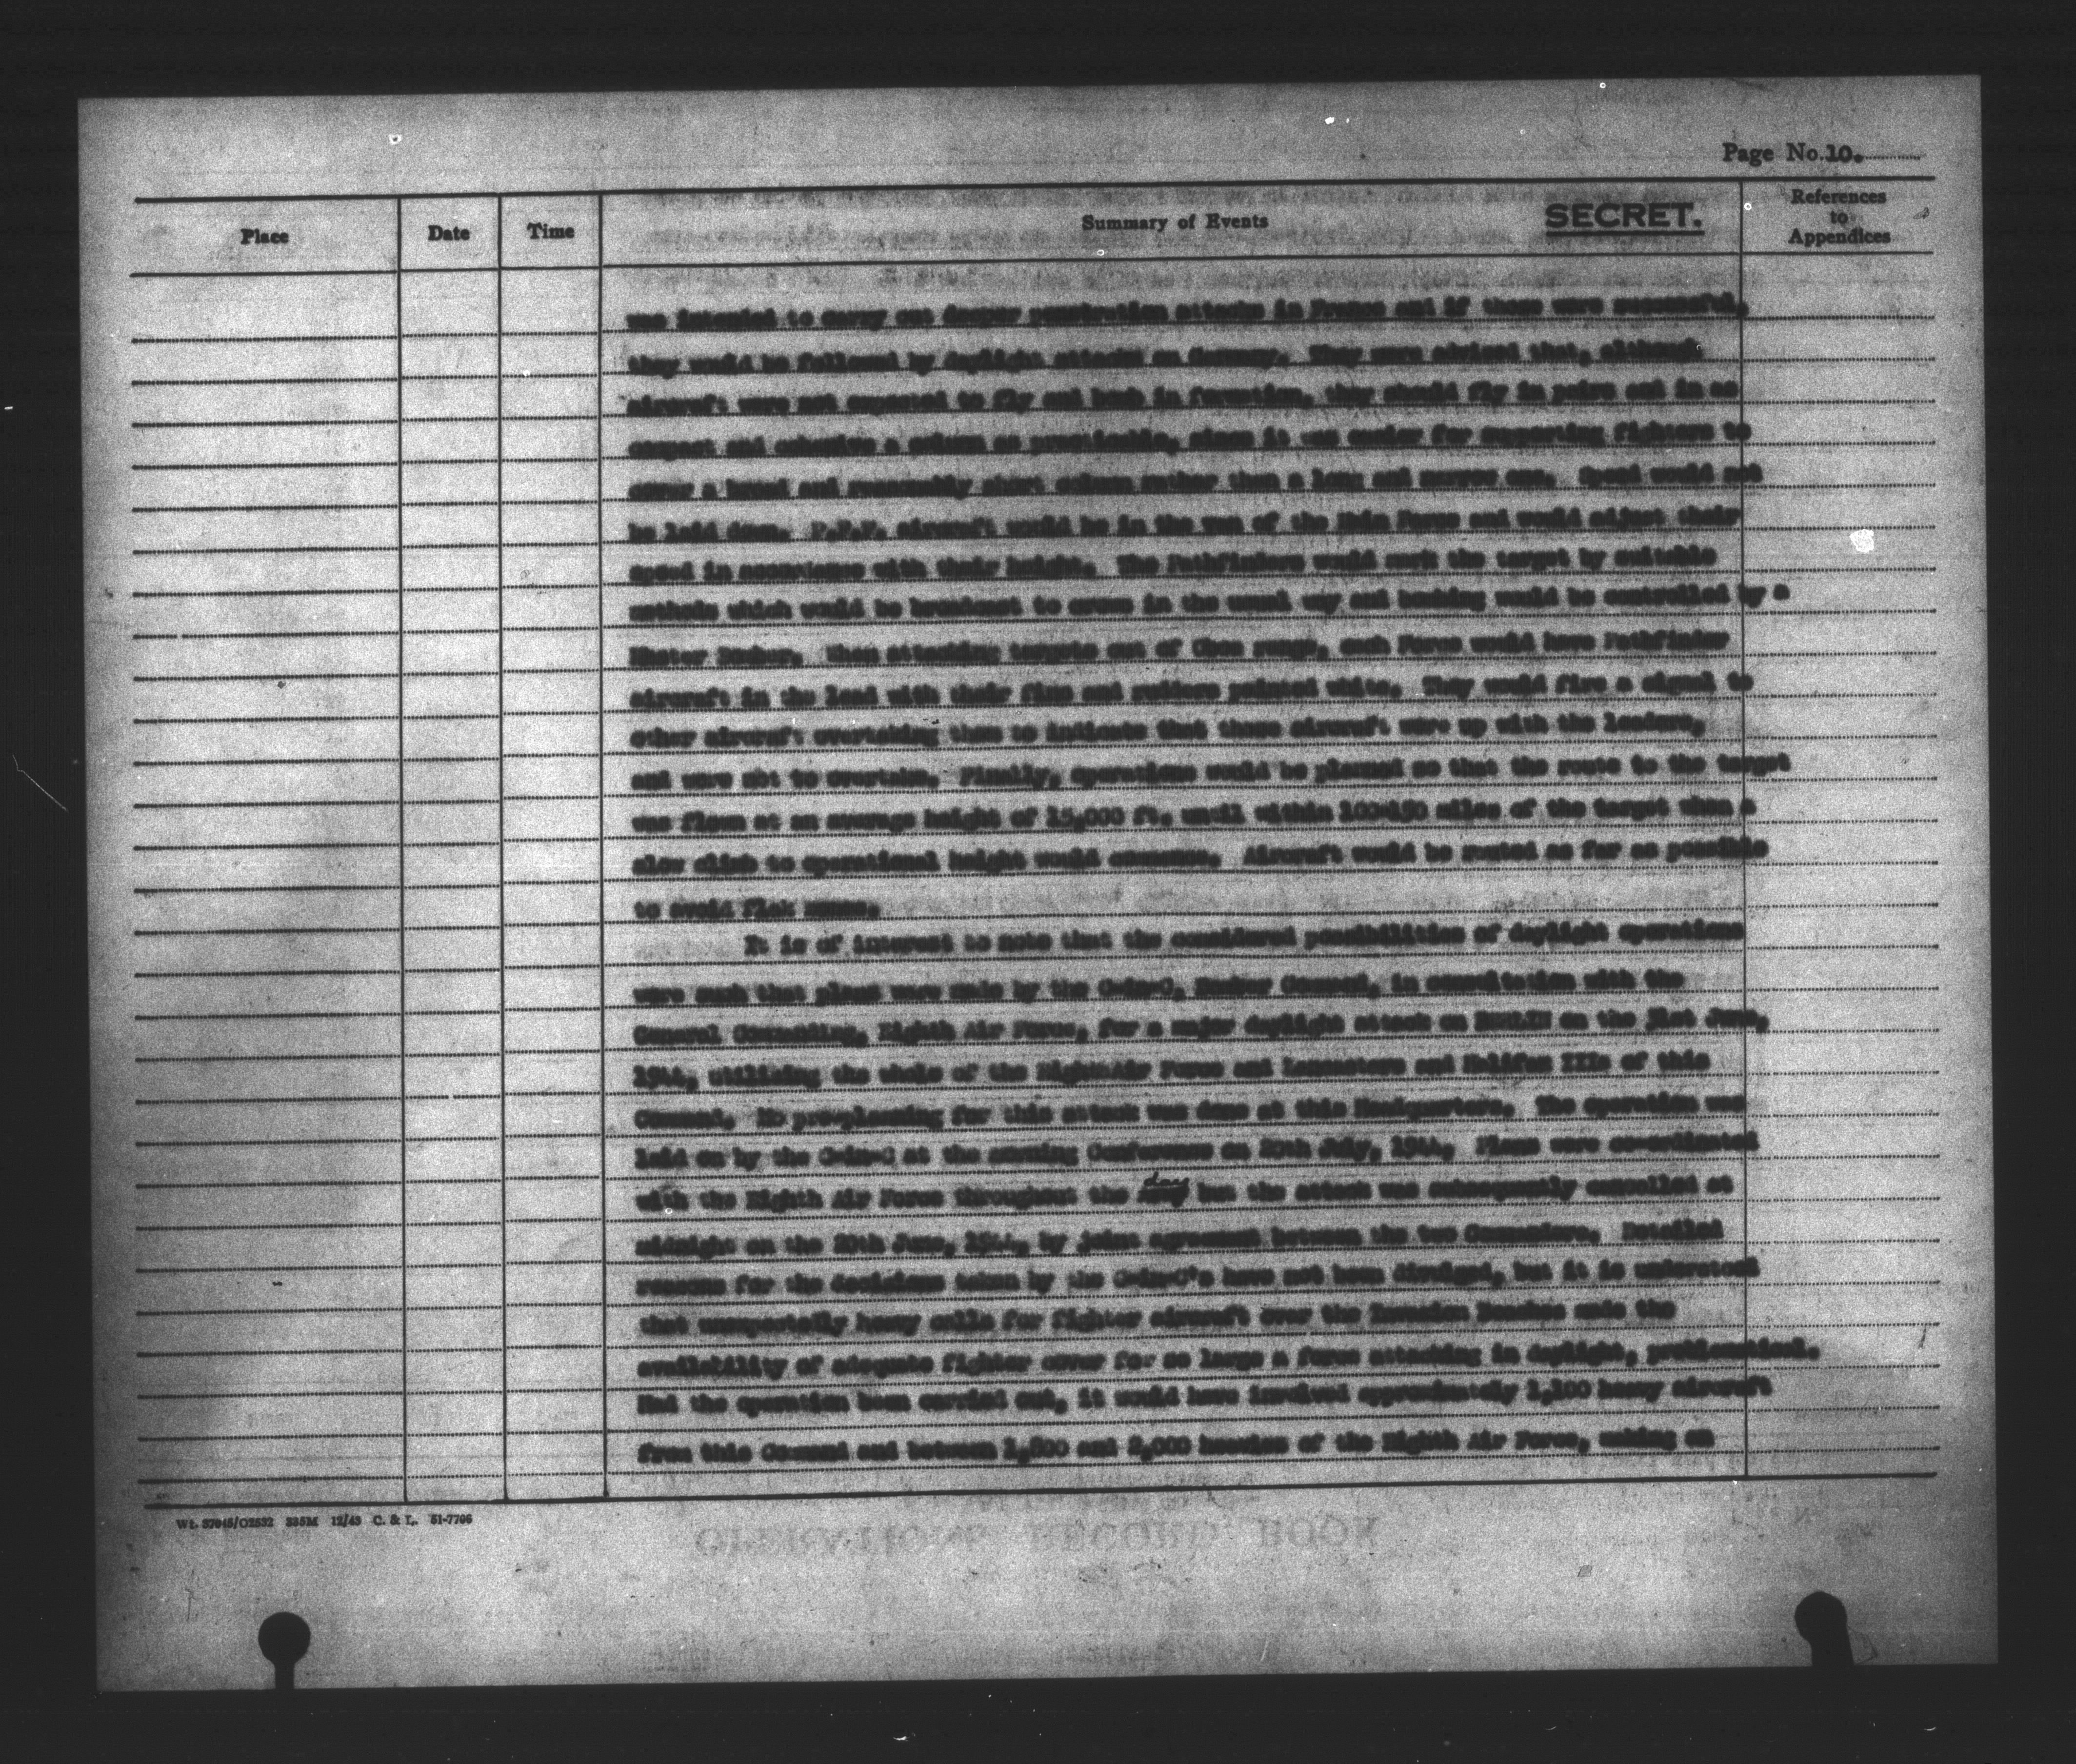 Page No. 10.
Place
Date
Time
Summary of Events
SECRET.
References
to
Appendices
was intended to carry out deeper penetration attacks in France and if these were successful,
they would be followed by daylight attacks on Germany. They were advised that, although
aircraft were not expected to fly and bomb in formation, they should fly in pairs and in as
compact and cohesive a column as practicable, since it was easier for supporting fighters to
cover a broad and reasonably short column rather than a long and narrow one. Speed would not
be laid down. P.F.F. aircraft would be in the van of the Main Force and would adjust their
speed in accordance with their height. The Pathfinders would mark the target by suitable
methods which would be broadcast to crews in the usual way and bombing would be controlled by a
Master Bomber. When attacking targets out of Oboe range, each Force would have Pathfinder
aircraft in the lead with their fins and rudders painted white. They would fire a signal to
other aircraft overtaking them to indicate that those aircraft were up with the leaders,
and were not to overtake. Finally, operations would be planned so that the route to the target
was flown at an average height of 15,000 ft. until within 100-150 miles of the target when a
slow climb to operational height would commence. Aircraft would be routed as far as possible
to avoid flak zones.
It is of interest to note that the considered possibilities of daylight operations
were such that plans were made by the C-in-C, Bomber Command, in consultation with the
General Commanding, Eighth Air Force, for a major daylight attack on BERLIN on the 21st June,
1944, utilising the whole of the Eighth Air Force and Lancasters and Halifax IIIs of this
Command. No pre-planning for this attack was done at this Headquarters. The operation was
laid on by the C-in-C at the morning Conference on 20th July, 1944. Plans were co-ordinated
with the Eighth Air Force throughout the day but the attack was subsequently cancelled at
midnight on the 20th June, 1944, by joint agreement between the two Commanders. Detailed
reasons for the decisions taken by the C-in-C's have not been divulged, but it is understood
that unexpectedly heavy calls for fighter aircraft over the Invasion Beaches made the
availability of adequate fighter cover for so large a force attacking in daylight, problematical.
Had the operation been carried out, it would have involved approximately 1,100 heavy aircraft
from this Command and between and 2,000 heavies of the Eighth Air Force, making an
Wt. 37045/O2532 335M 12/43 C. & L. 51-7706
OPERATIONS RECORD BOOK